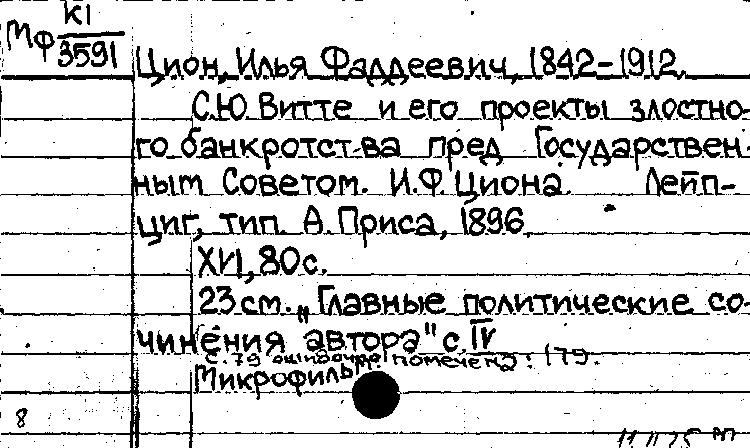 Мф К1
3591
Цион, Илья Фаддеевич, 1842-1912.
С.Ю. Витте и его проекты злостно-
го банкротства пред Государствен-
ным Советом. И.Ф. Циона. Лейп-
циг, тип. А. Приса, 1896.
XVI, 80 с.
23 см. „Главные политические со-
чинения автора" с. IV
С. 79 ошибочно помечена: 179.
Микрофильм
8